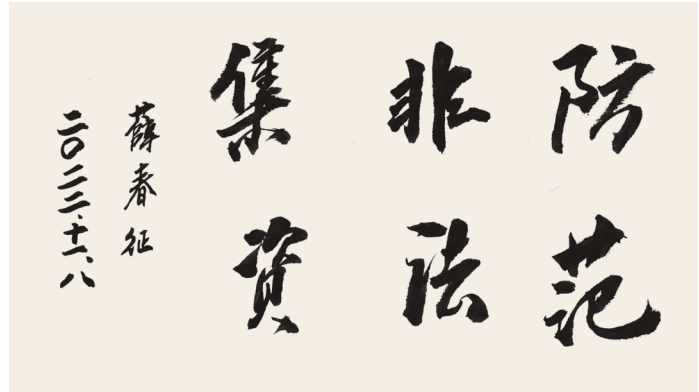 防范
非法
集资
薛春征
二〇二二、十一、八